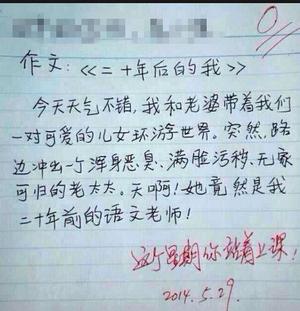 0
作文：《二十年后的我》
今天天气不错，我和老婆带着我们
一对可爱的儿女环游世界。突然，路
边冲出一个浑身恶臭、满脏污秽、无家
可归的老太太。天啊！她竟然是我
二十年前的语文老师！
这个星期你站着上课！
2014.5.29.